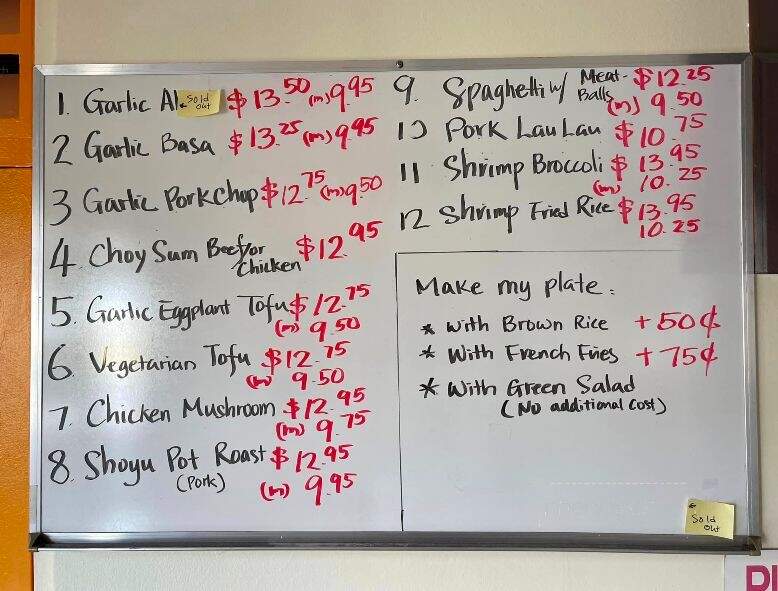 1. Garlic A Sold out $13.50 (m) 9.95
2 Garlic Basa $13.25 (m) 9.95
3 Garlic Porkchop $12.75 (m) 9.50
4. Choy Sum Beef/or $12.95
Chicken
5. Garlic Eggplant Tofu $12.75
(m) 9.50
6 Vegetarian Tofu $12.75
(m) 9.50
7. Chicken Mushroom $12.95
(m) 9.75
8. Shoyu Pot Roast $12.95
(Pork) (m) 9.95
9. Spaghetti w/ Meat- $12.25
Balls (m) 9.50
10 Pork Lau Lau $10.75
11 Shrimp Broccoli $13.95
(m) 10.25
12 Shrimp Fried Rice $13.95
10.25
Make my plate:
* with Brown Rice +50¢
* with French Fries +75¢
* with Green Salad
(No additional cost)
Sold
out
DI